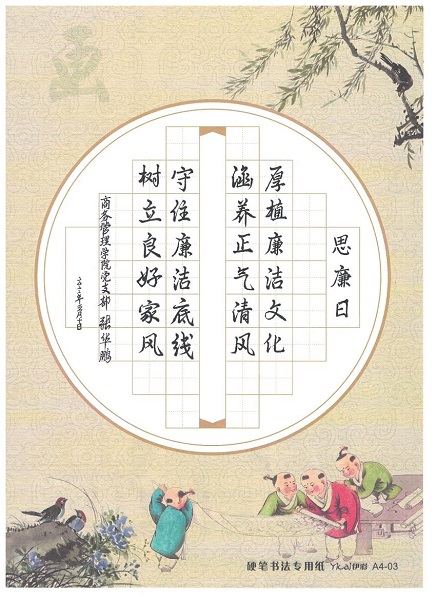 思廉日
厚植廉洁文化
涵养正气清风
守住廉洁底线
树立良好家风
商务管理学院党支部 张华鹏
硬笔书法专用纸 Yk.al伊彩 A4-03